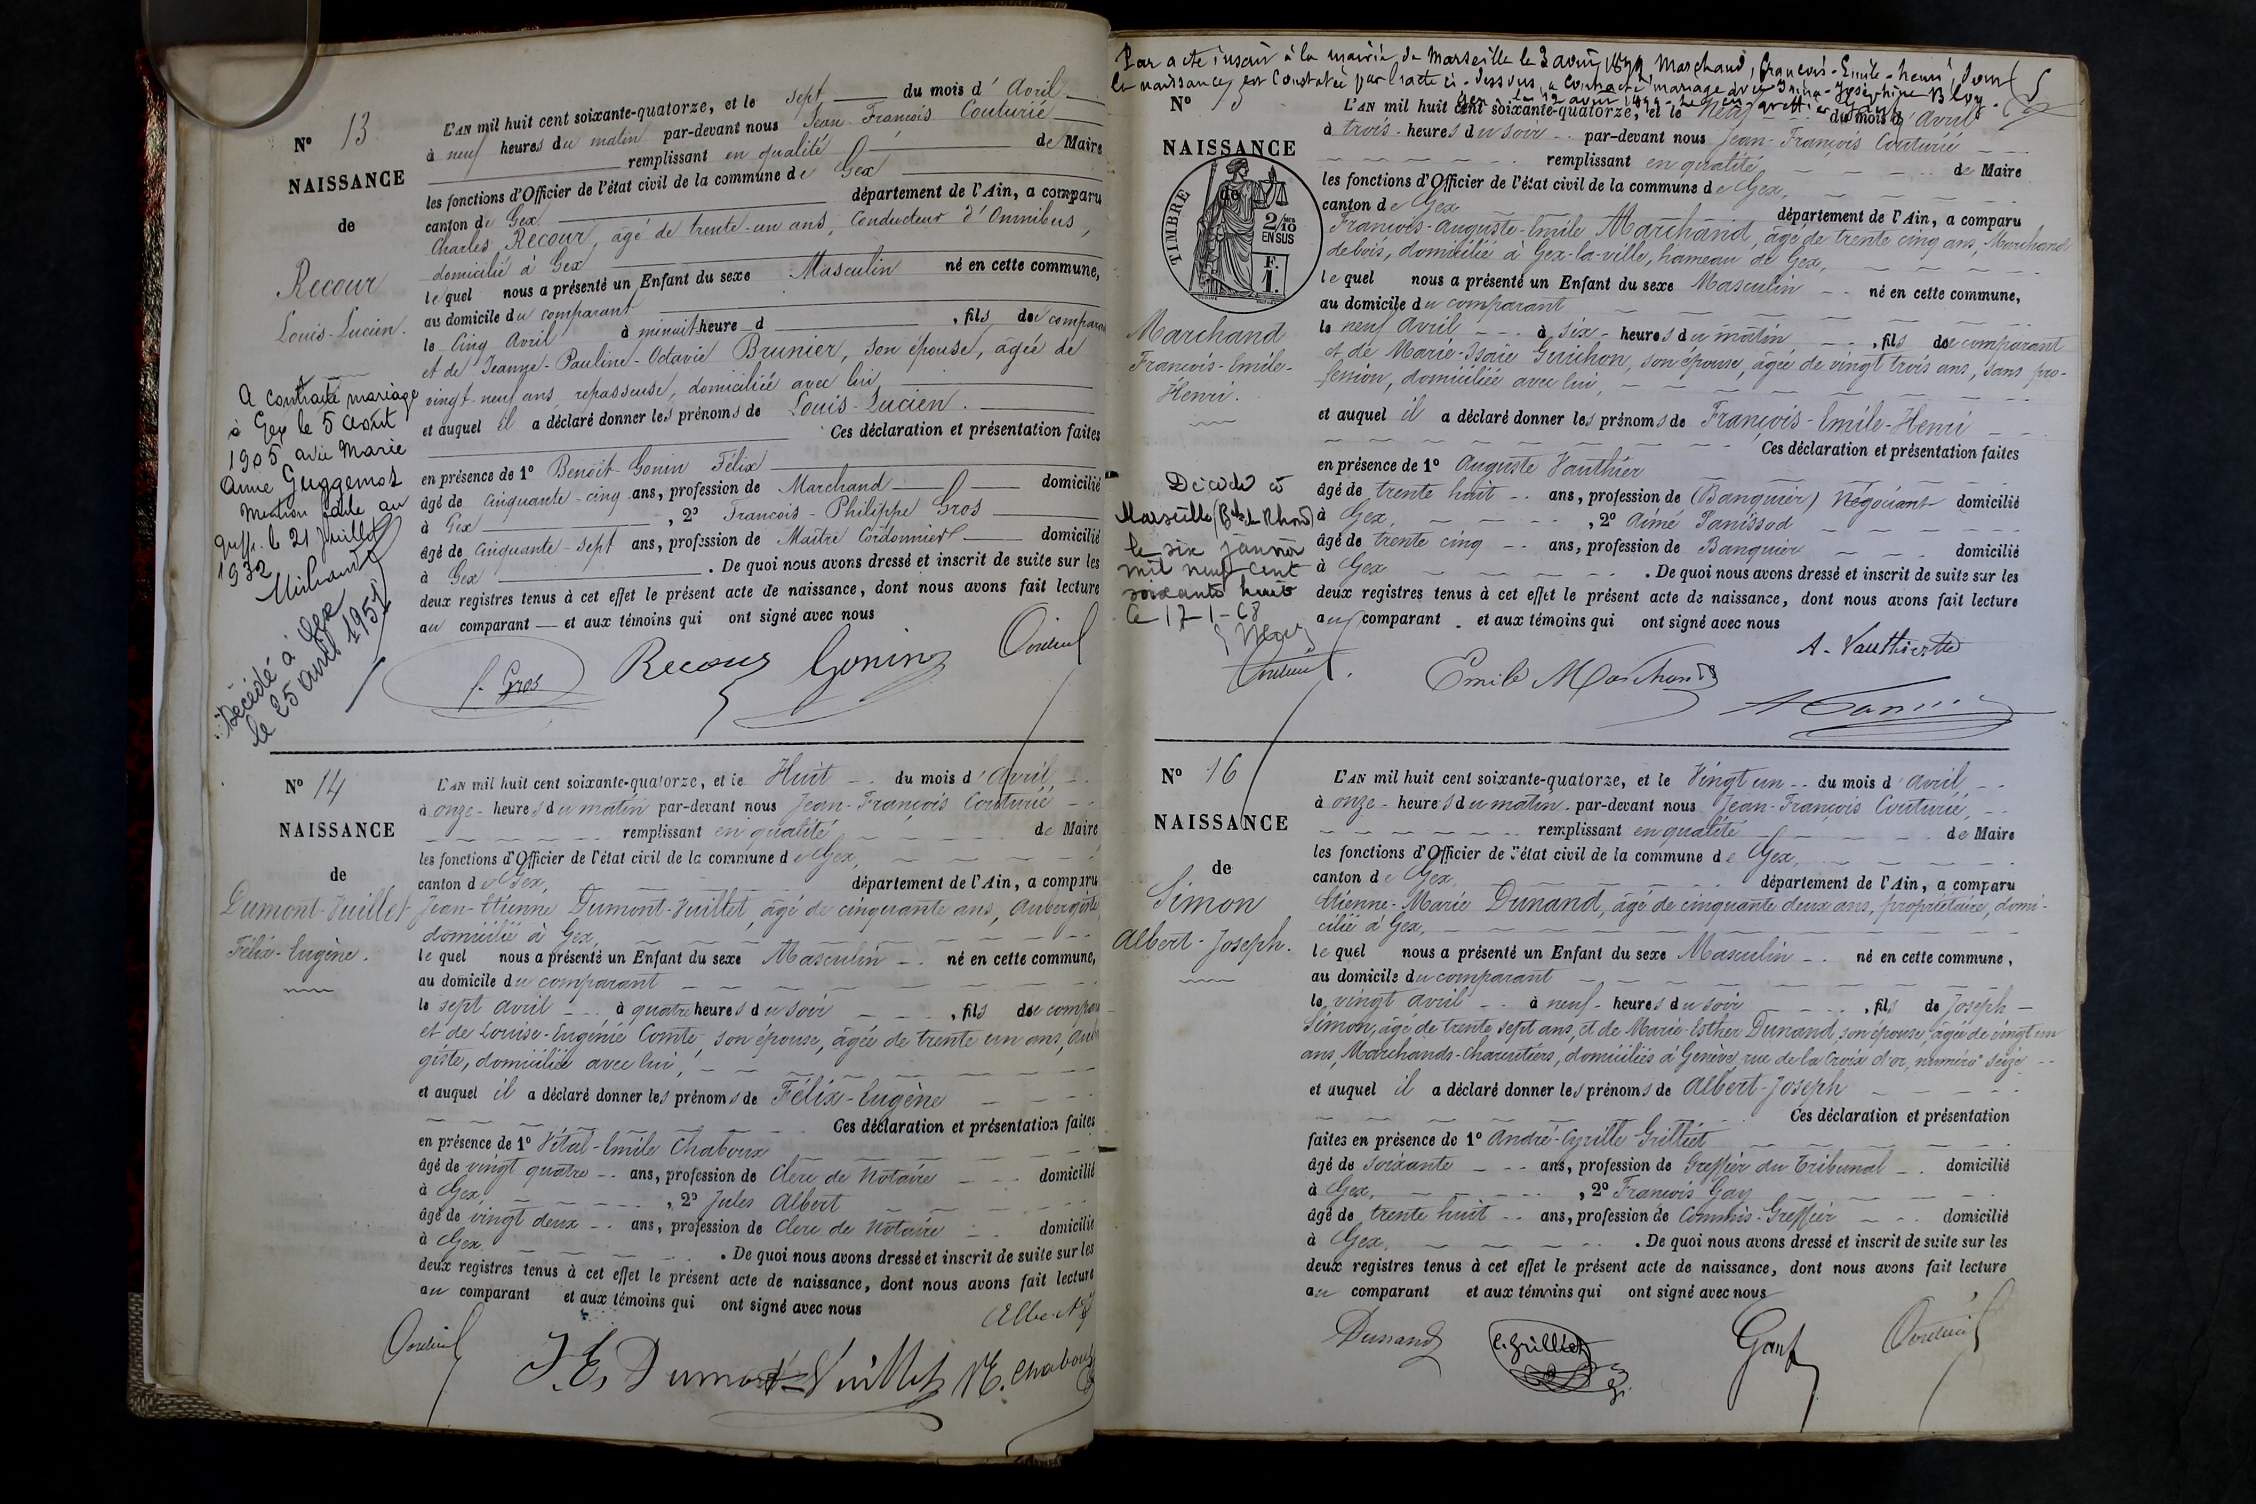 N° 13
NAISSANCE
de
Recour
Louis-Lucien.
A contracté mariage
à Gex le 5 août
1905 avec Marie
Anne Guggemos
Mention faite au
greffe le 21 Juillet
1932
Décédé à Gex
le 25 avril 1951
L'AN mil huit cent soixante-quatorze, et le sept du mois d'Avril
à neuf heures du matin par-devant nous Jean-François Couturié
remplissant en qualité de Maire
les fonctions d'Officier de l'état civil de la commune de Gex
canton de Gex département de l'Ain, a comparu
Charles Recour, âgé de trente-un ans, Conducteur d'Omnibus,
domicilié à Gex
lequel nous a présenté un Enfant du sexe Masculin né en cette commune,
au domicile du comparant
le Cinq Avril à minuit heure d , fils de comparant
et de Jeanne-Pauline-Octavie Brunier, son épouse, âgée de
vingt-neuf ans, repasseuse, domiciliée avec lui,
et auquel il a déclaré donner les prénoms de Louis-Lucien.
Ces déclaration et présentation faites
en présence de 1° Benoit-Gonin Félix
âgé de cinquante-cinq ans, profession de Marchand domicilié
à Gex , 2° François-Philippe Gros
âgé de cinquante-sept ans, profession de Maître Cordonnier domicilié
à Gex . De quoi nous avons dressé et inscrit de suite sur les
deux registres tenus à cet effet le présent acte de naissance, dont nous avons fait lecture
au comparant et aux témoins qui ont signé avec nous
f. Gros Recour Gonin
N° 14
NAISSANCE
de
Dumont-Vuillet
Félix-Eugène.
L'AN mil huit cent soixante-quatorze, et le Huit du mois d'Avril
à onze heures du matin par-devant nous Jean-François Couturié
remplissant en qualité de Maire
les fonctions d'Officier de l'état civil de la commune de Gex,
canton de Gex, département de l'Ain, a comparu
Jean-Etienne Dumont-Vuillet, âgé de cinquante ans, Aubergiste
domicilié à Gex,
lequel nous a présenté un Enfant du sexe Masculin né en cette commune,
au domicile du comparant
le sept avril à quatre heures du soir , fils de compara
et de Louise-Eugénie Comte, son épouse, âgée de trente un ans, Aub
giste, domiciliée avec lui,
et auquel il a déclaré donner les prénoms de Félix-Eugène
Ces déclaration et présentation faites
en présence de 1° Vital-Emile Chaboux
âgé de vingt quatre ans, profession de Clerc de Notaire domicilié
à Gex, , 2° Jules Albert
âgé de vingt deux ans, profession de Clerc de Notaire domicilié
à Gex . De quoi nous avons dressé et inscrit de suite sur les
deux registres tenus à cet effet le présent acte de naissance, dont nous avons fait lecture
au comparant et aux témoins qui ont signé avec nous
J. E. Dumont-Vuillet V E. Chaboux
Par acte inscrit à la mairie de Marseille le 2 avril 1899, Marchand, François-Emile-Henri, dont
la naissance est constatée par l'acte ci-dessous, a contracté mariage avec Joséphine Bloy.
N°
NAISSANCE
de
TIMBRE
2/10
EN SUS
F.
1.
Marchand
François-Emile-
Henri.
Décédé à
Marseille (B. du Rhône)
le six janvier
mil neuf cent
soixante huit
Le 17-1-68
L'AN mil huit cent soixante-quatorze, et le Neuf du mois d'Avril
à trois heures du soir par-devant nous Jean-François Couturié
remplissant en qualité de Maire
les fonctions d'Officier de l'état civil de la commune de Gex,
canton de Gex département de l'Ain, a comparu
François-Auguste-Emile Marchand, âgé de trente cinq ans, Marchand
de bois, domicilié à Gex-la-ville, hameau de Gex,
lequel nous a présenté un Enfant du sexe Masculin né en cette commune,
au domicile du comparant
le neuf Avril à six heures du matin , fils de comparant
et de Marie-Isaïe Guichon, son épouse, âgée de vingt trois ans, sans pro-
fession, domiciliée avec lui,
et auquel il a déclaré donner les prénoms de François-Emile-Henri
Ces déclaration et présentation faites
en présence de 1° Auguste Vauthier
âgé de trente huit ans, profession de (Banquier) Négociant domicilié
à Gex, , 2° Aimé Panissod
âgé de trente cinq ans, profession de Banquier domicilié
à Gex . De quoi nous avons dressé et inscrit de suite sur les
deux registres tenus à cet effet le présent acte de naissance, dont nous avons fait lecture
au comparant . et aux témoins qui ont signé avec nous
A. Vauthier
Emile Marchand
N° 16
NAISSANCE
de
Simon
Albert-Joseph.
L'AN mil huit cent soixante-quatorze, et le Vingt un du mois d'Avril,
à onze heures du matin par-devant nous Jean-François Couturié,
remplissant en qualité de Maire
les fonctions d'Officier de l'état civil de la commune de Gex,
canton de Gex département de l'Ain, a comparu
Etienne-Marie Dunand, âgé de cinquante deux ans, propriétaire, domi-
cilié à Gex,
lequel nous a présenté un Enfant du sexe Masculin né en cette commune,
au domicile du comparant
le vingt avril à neuf heures du soir , fils de Joseph
Simon, âgé de trente sept ans, et de Marie-Esther Dunand, son épouse, âgée de vingt un
ans, Marchands-Charcutiers, domiciliés à Genève, rue de la Croix d'or, numéro seize
et auquel il a déclaré donner les prénoms de Albert-Joseph
Ces déclaration et présentation
faites en présence de 1° André-Cyrille Grilliet
âgé de soixante ans, profession de Greffier du Tribunal domicilié
à Gex, , 2° François Gay
âgé de trente huit ans, profession de Commis-Greffier domicilié
à Gex, . De quoi nous avons dressé et inscrit de suite sur les
deux registres tenus à cet effet le présent acte de naissance, dont nous avons fait lecture
au comparant et aux témoins qui ont signé avec nous
Dunand C. Grilliet Gay